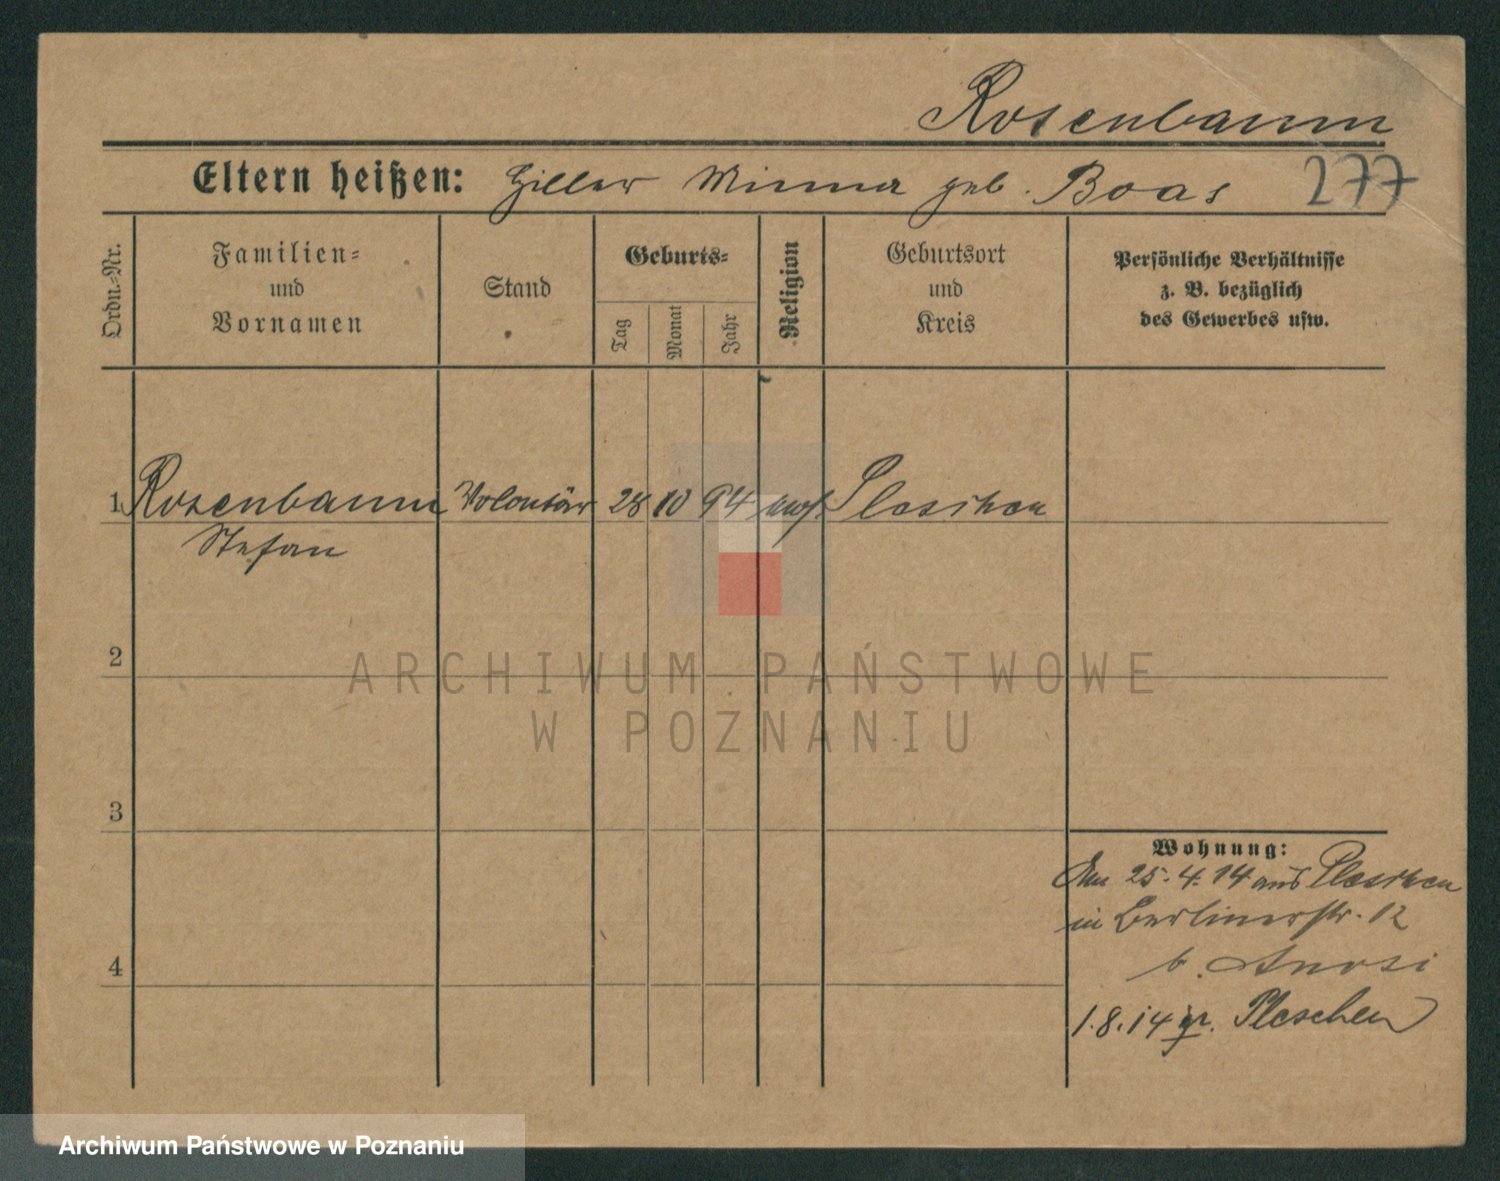 Rosenbaum
Eltern heißen: Hiller Minna geb. Boas
277
Ordn.-Nr.
Familien-
und
Vornamen
Stand
Geburts-
Tag
Monat
Jahr
Religion
Geburtsort
und
Kreis
Persönliche Verhältnisse
z. B. bezüglich
des Gewerbes usw.
1 Rosenbaum Volontär 28 10 94 Pleschen
Stefan
2
ARCHIWUM PAŃSTWOWE
W POZNANIU
3
Wohnung:
25.4.14 aus Pleschen
in Berlinerstr. 12
b.
4
1.8.14 Pleschen
Archiwum Państwowe w Poznaniu